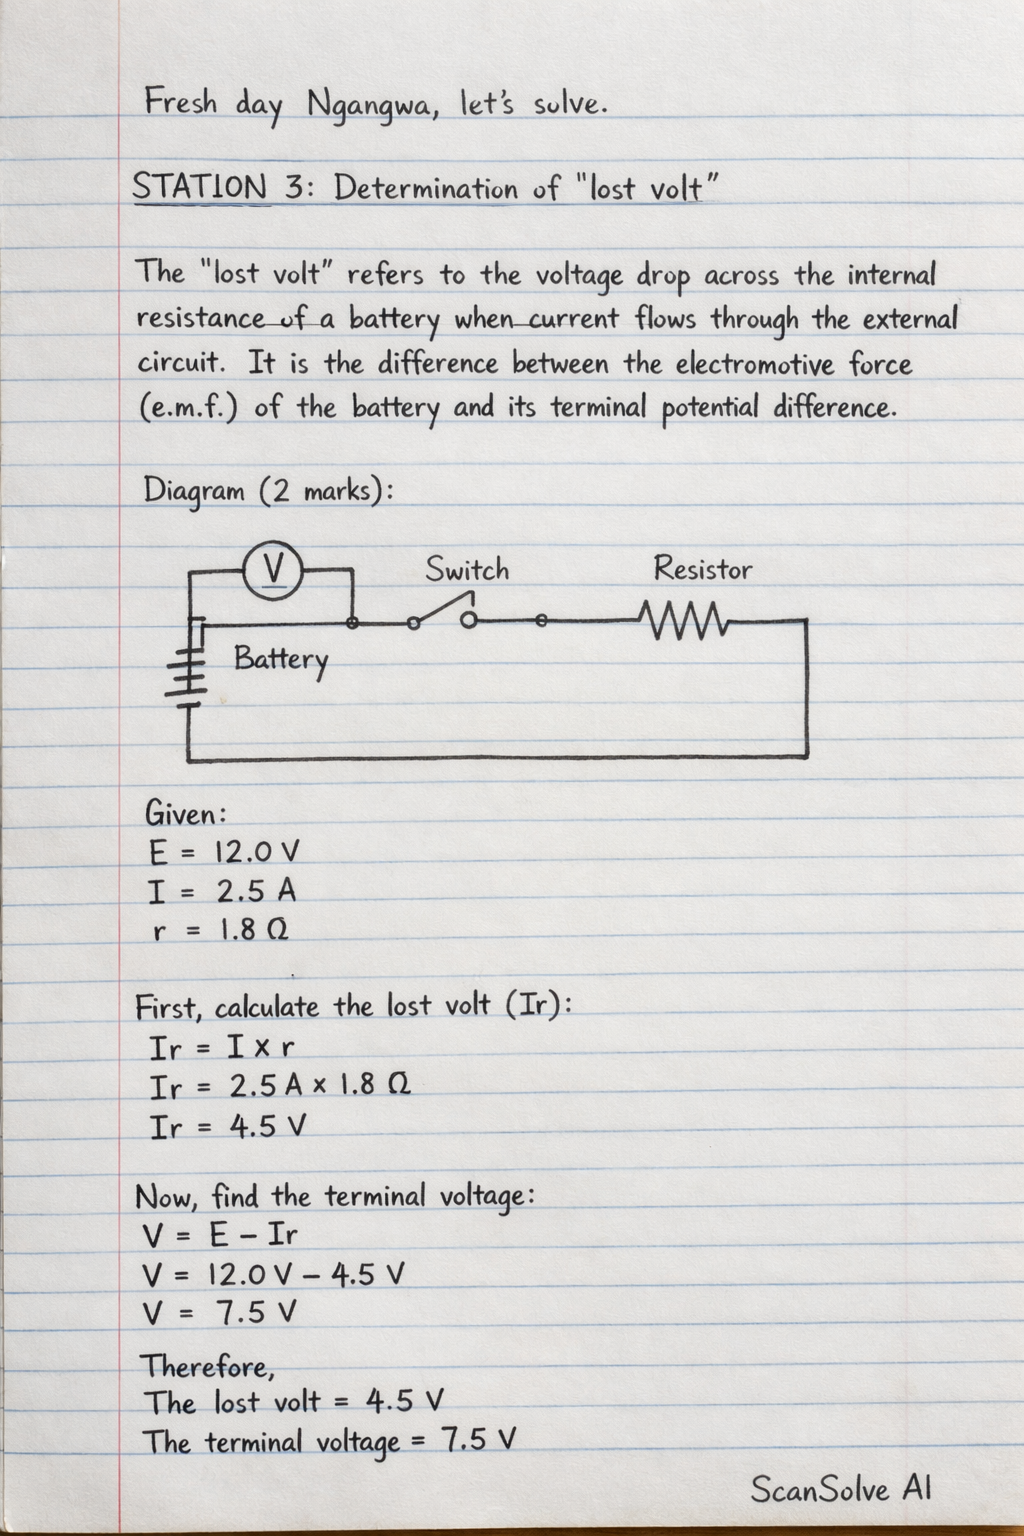 Fresh day Ngangwa, let's solve.
STATION 3: Determination of "lost volt"
The "lost volt" refers to the voltage drop across the internal
resistance of a battery when current flows through the external
circuit. It is the difference between the electromotive force
(e.m.f.) of the battery and its terminal potential difference.
Diagram (2 marks):
V
Switch
Resistor
Battery
Given:
E = 12.0 V
I = 2.5 A
r = 1.8 Ω
First, calculate the lost volt (Ir):
Ir = I x r
Ir = 2.5 A x 1.8 Ω
Ir = 4.5 V
Now, find the terminal voltage:
V = E – Ir
V = 12.0 V – 4.5 V
V = 7.5 V
Therefore,
The lost volt = 4.5 V
The terminal voltage = 7.5 V
ScanSolve AI